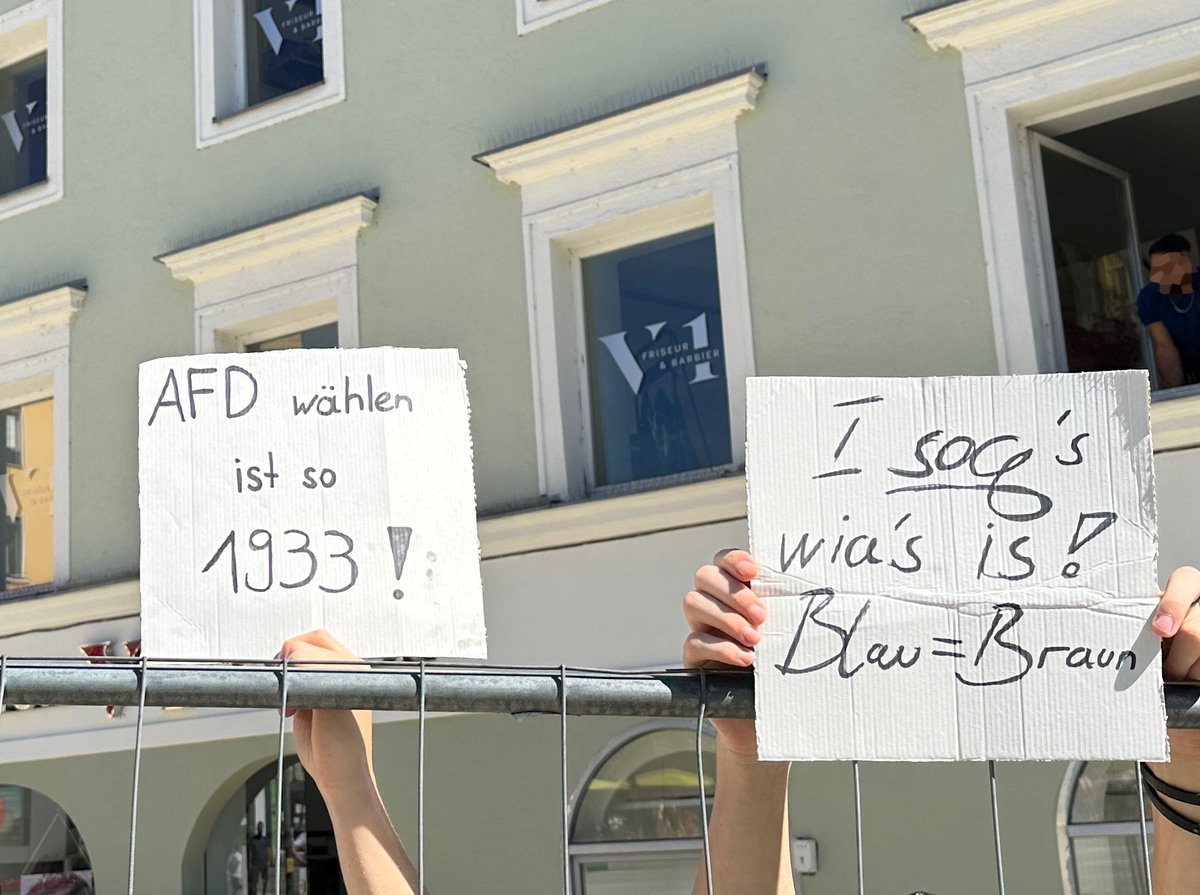 V1
FRISEUR
& BARBIER
V1
FRISEUR
& BARBIER
V1
FRISEUR
& BARBIER
AFD wählen
ist so
1933!
I sog's
wia's is!
Blau=Braun